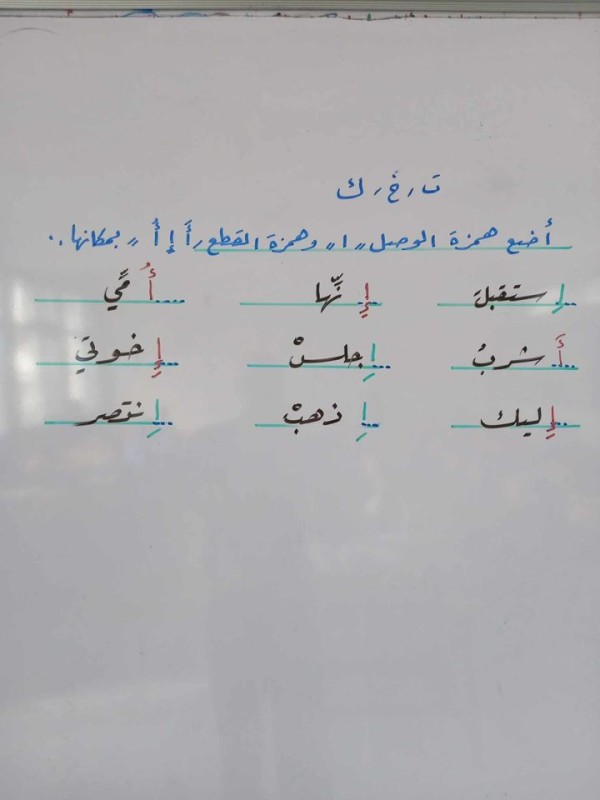 ت ، خ ، ك
أضع همزة الوصل " ا " وهمزة القطع " أَ إِ أُ " بمكانها .
اِستقبلَ إِنّها أُمّي
أَشربُ اِجلسْ إِخوتي
إِليك اِذهبْ اِنتصر